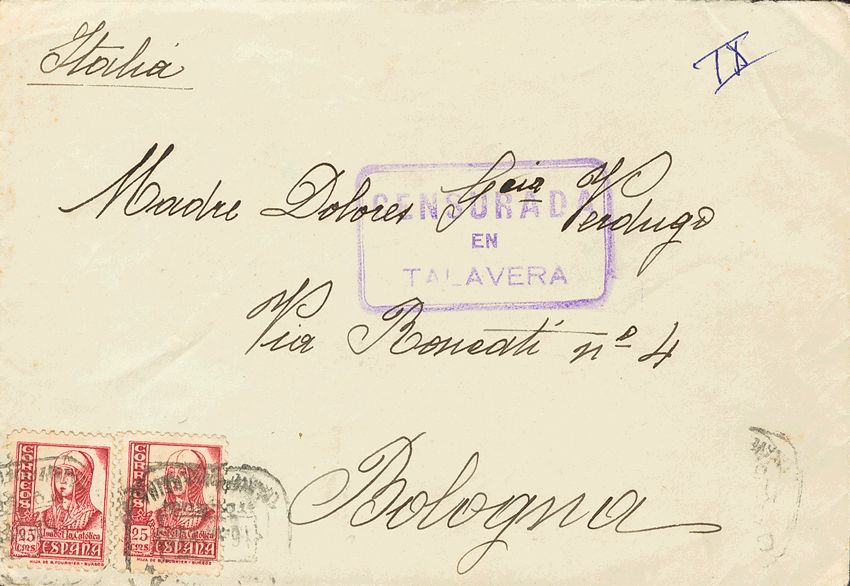 Italiá
IX
Madre Dolores Gcia Verdugo
CENSURADA
EN
TALAVERA
Via Roncati nº 4
Bologna
CORREOS
25
cts
Isabel la Católica
ESPAÑA
HIJA DE B. FOURNIER - BURGOS
CORREOS
25
cts
Isabel la Católica
ESPAÑA
HIJA DE B. FOURNIER - BURGOS